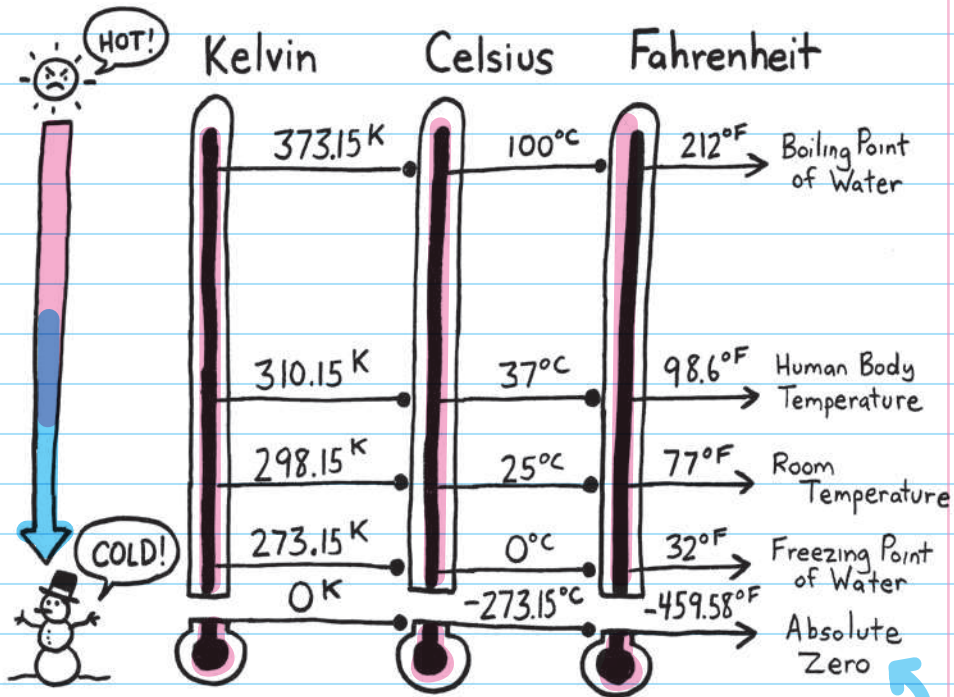 HOT!
Kelvin Celsius Fahrenheit
373.15 K 100°C 212°F Boiling Point
of Water
310.15 K 37°C 98.6°F Human Body
Temperature
298.15 K 25°C 77°F Room
Temperature
COLD!
273.15 K 0°C 32°F Freezing Point
of Water
0 K -273.15°C -459.58°F Absolute
Zero